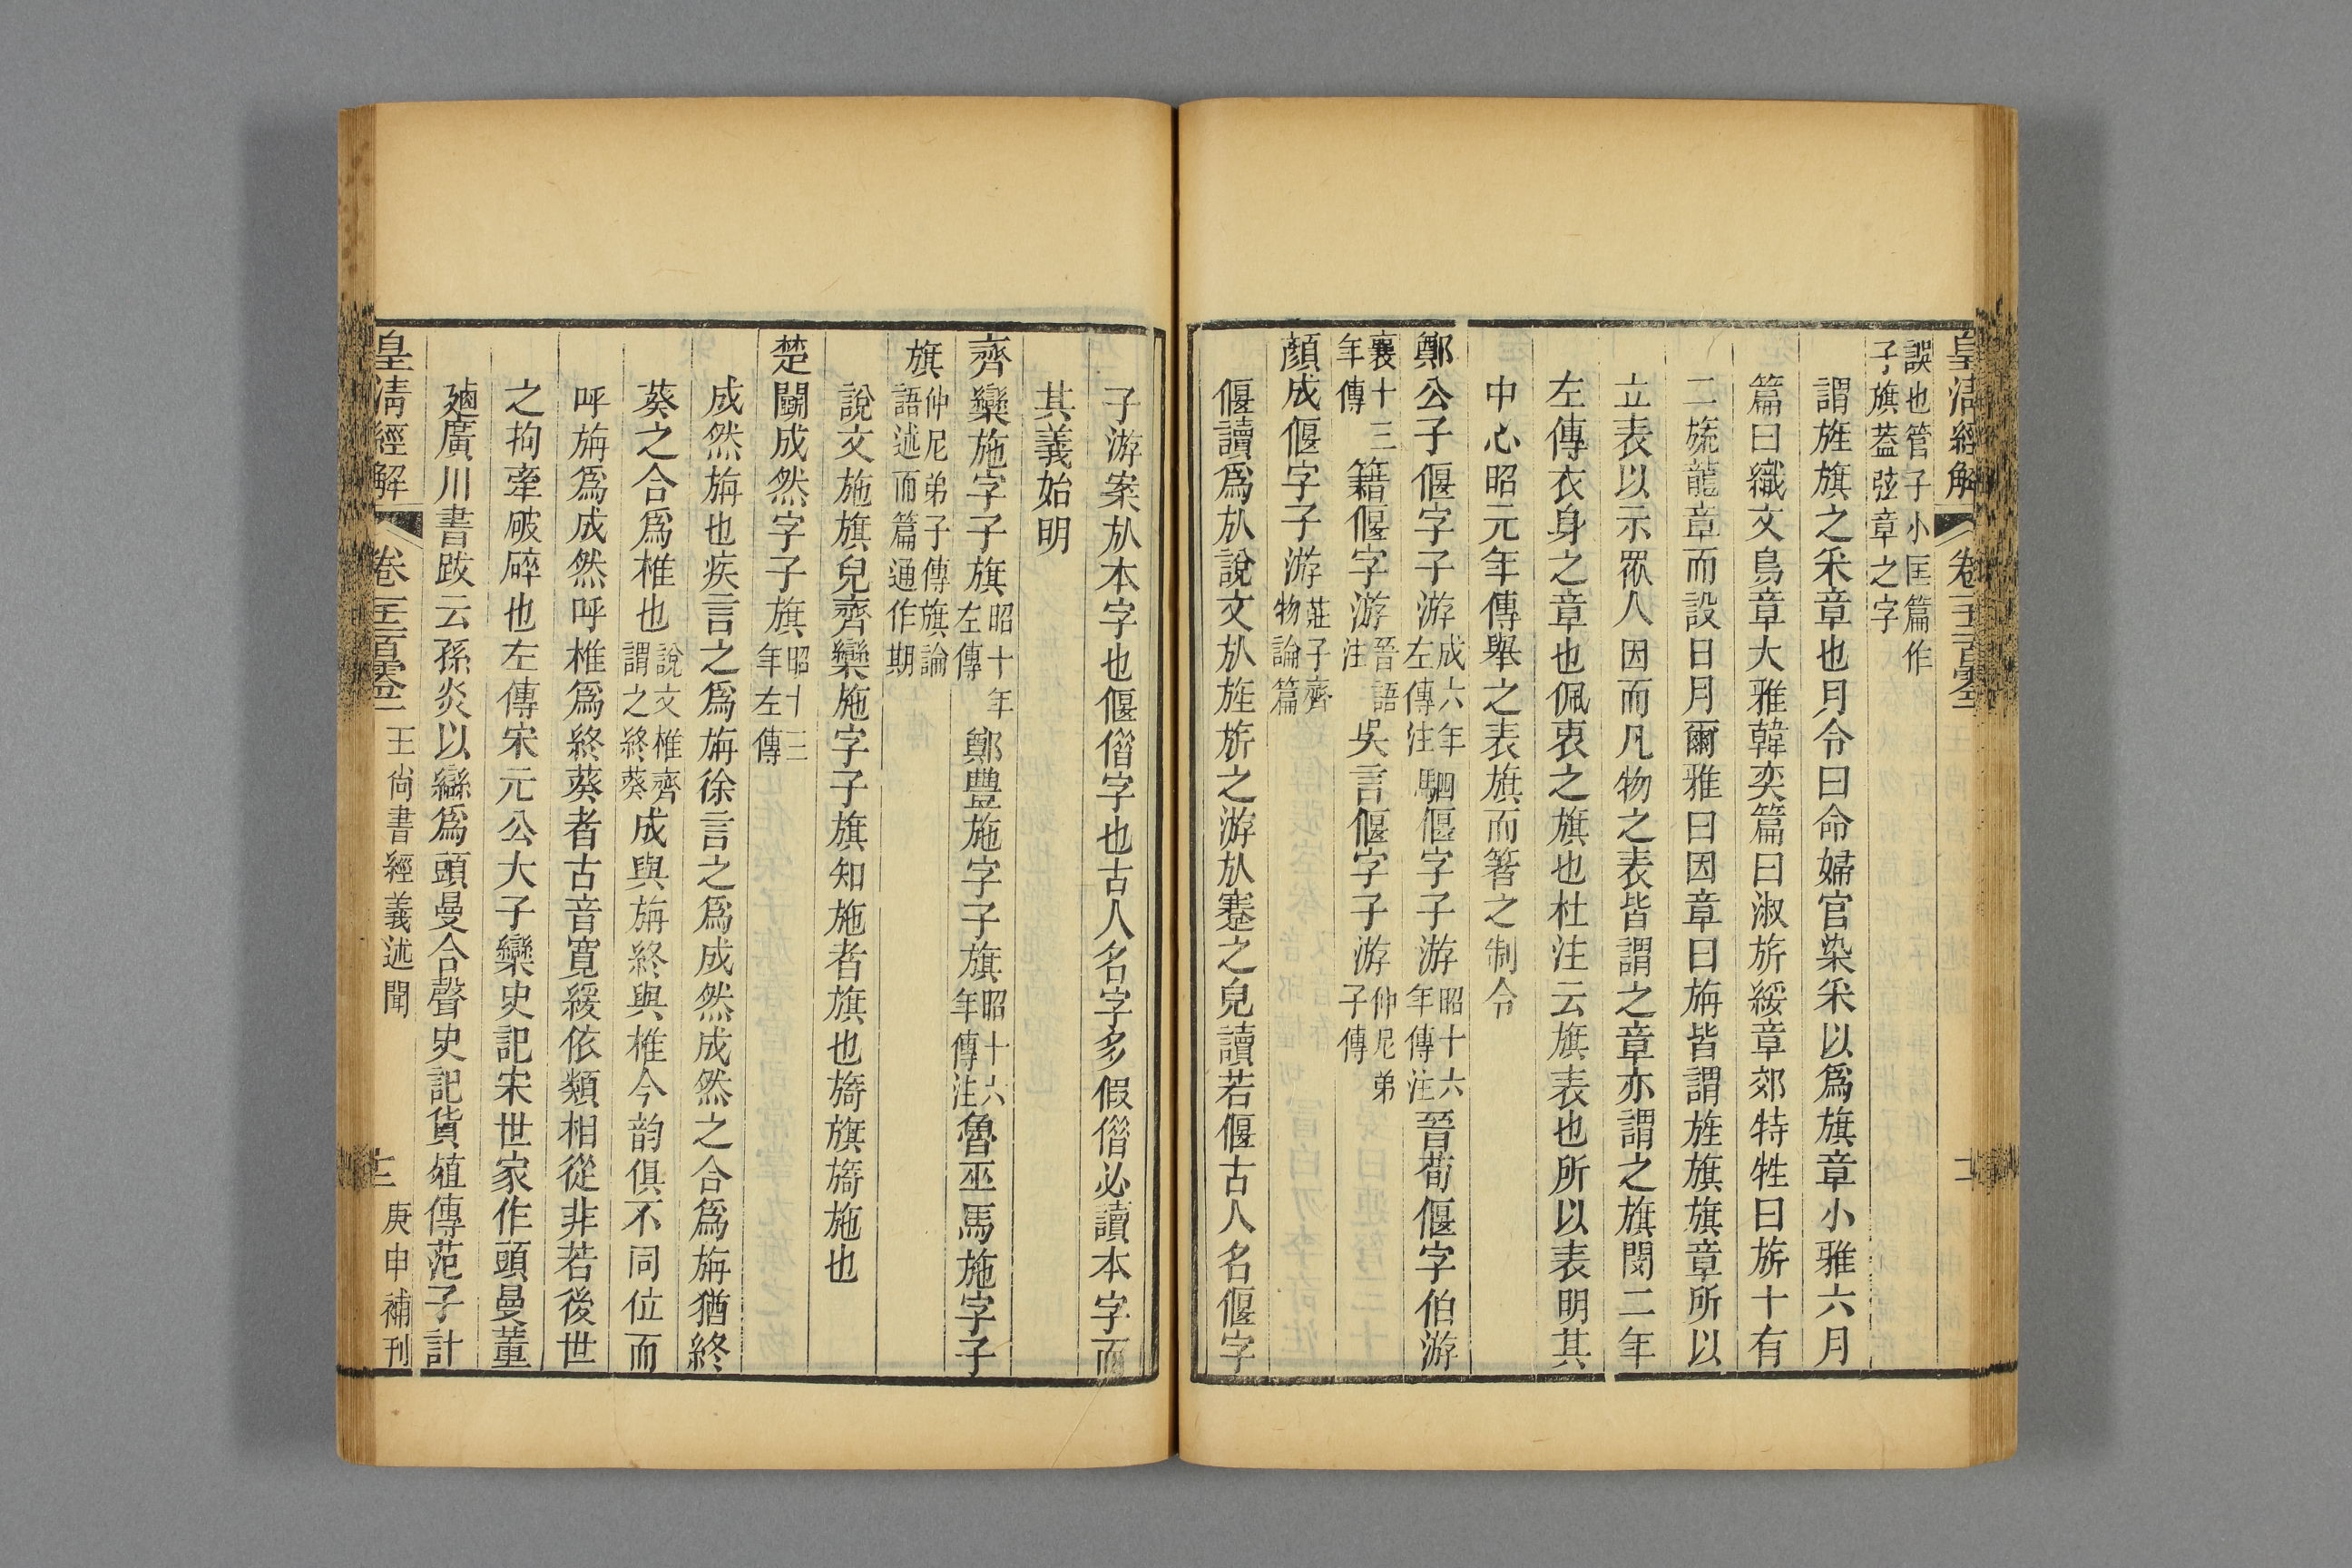 皇淸經解
卷一千二百零三
誤也管子小匡篇作
子旗葢弦章之字
謂旌旗之采章也月令曰命婦官染采以爲旗章小雅六月
篇曰織文鳥章大雅韓奕篇曰淑旂綏章郊特牲曰旂十有
二旒龍章而設日月爾雅曰因章曰旃皆謂旌旗旗章所以
立表以示眾人因而凡物之表皆謂之章亦謂之旗閔二年
左傳衣身之章也佩衷之旗也杜注云旗表也所以表明其
中心昭元年傳舉之表旗而箸之制令
鄭公子偃字子游成六年左傳注駟偃字子游昭十六年傳注晉荀偃字伯游
襄十三年傳籍偃字游晉語注吳言偃字子游仲尼弟子傳
顏成偃字子游莊子齊物論篇
偃讀爲㫃說文㫃旌旂之游㫃蹇之皃讀若偃古人名偃字
子游案㫃本字也偃偺字也古人名字多假偺必讀本字而
其義始明
齊欒施字子旗昭十年左傳鄭豐施字子旗昭十六年傳注魯巫馬施字子
旗仲尼弟子傳旗論語述而篇通作期
說文施旗皃齊欒施字子旗知施者旗也旖旗旖施也
楚鬬成然字子旗昭十三年左傳
成然旃也疾言之爲旃徐言之爲成然成然之合爲旃猶終
葵之合爲椎也說文椎齊謂之終葵成與旃終與椎今韵俱不同位而
呼旃爲成然呼椎爲終葵者古音寬緩依類相從非若後世
之拘牽破碎也左傳宋元公大子欒史記宋世家作頭曼董
逌廣川書跋云孫炎以䜌爲頭曼合聲史記貨殖傳范子計
皇淸經解
卷一千二百零三
王尙書經義述聞
十二
庚申補刊